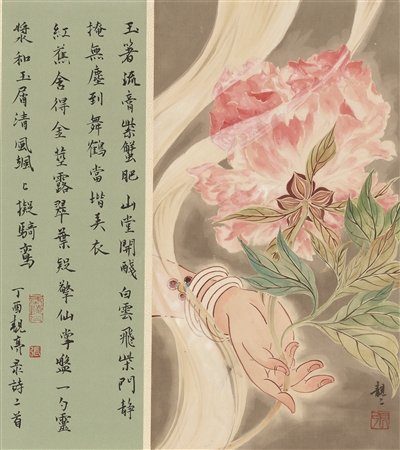 玉箸流膏紫蟹肥山堂開醆白雲飛柴門靜
掩無塵到舞鶴當堦美衣
紅蕉舍得金莖露翠葉疑擎仙掌盤一勺靈
漿和玉屑清風颯〻擬騎鸞
丁酉觀亭录詩二首
觀〻